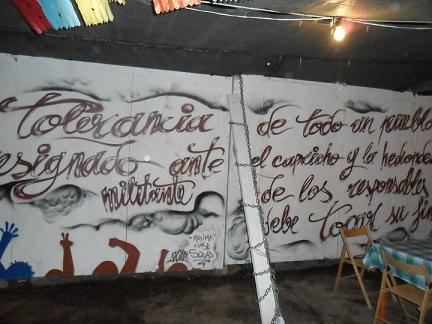 Tolerancia
esignado ante
militante
de todo un pueblo
el capricho y la hedionde
de los responsables
debe tocar su fin
MAXIMA
SQUAD